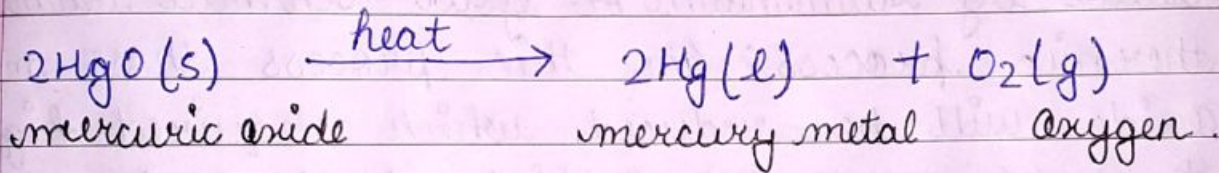 heat
2HgO(s) ⟶ 2Hg(l) + O₂(g)
mercuric oxide mercury metal Oxygen.